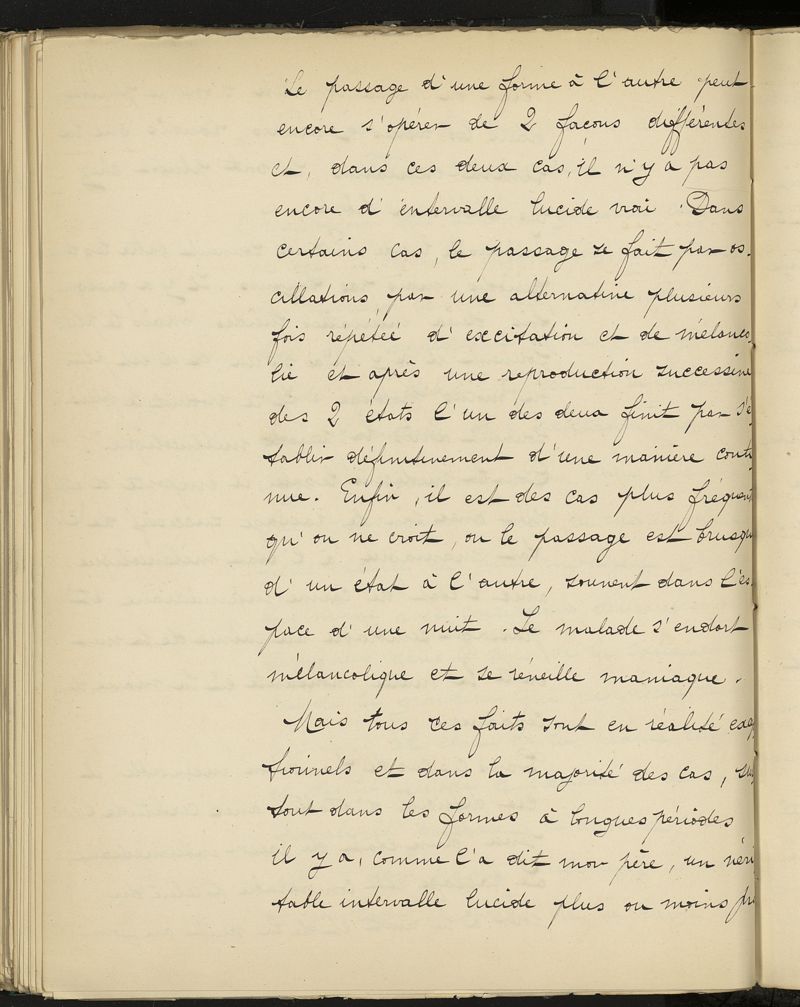 Le passage d'une forme à l'autre peut
encore s'opérer de 2 façons différentes
et, dans ces deux cas, il n'y a pas
encore d'intervalle lucide vrai. Dans
certains cas, le passage se fait par os-
cillations par une alternative plusieurs
fois répétée d'excitation et de mélanco
lie et après une reproduction successive
des 2 états l'un des deux finit par s'é
tablir définitivement d'une manière conti
nue. Enfin, il est des cas plus fréquent
qu'on ne croit, ou le passage est brusqu
d'un état à l'autre, souvent dans l'es-
pace d'une nuit. Le malade s'endort
mélancolique et se réveille maniaque.
Mais tous ces faits sont en réalité excep
tionnels et dans la majorité des cas, sur
tout dans les formes à longues périodes
il y a, comme l'a dit mon père, un véri
table intervalle lucide plus ou moins